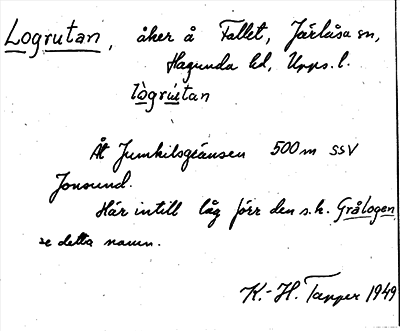 Logrutan, åker å Fallet, Järlåsa sn,
Hagunda hd, Upps. l.
lògrùtan
Åt Jumkilsgränsen 500 m SSV
Jonsund.
Här intill låg förr den s.k. Grålogen,
se detta namn.
K.-H. Tapper 1949